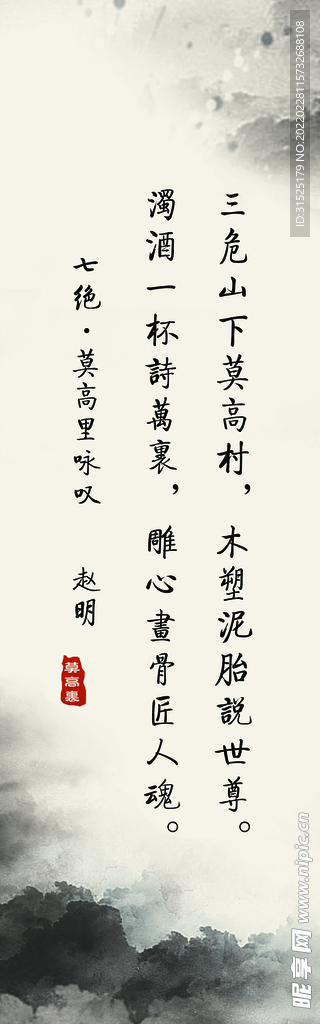 三危山下莫高村，木塑泥胎説世尊。
濁酒一杯詩萬裏，雕心畫骨匠人魂。
七绝·莫高里咏叹 赵明
莫高裏
ID:31525179 NO:20220228115732688108
昵享网 www.nipic.cn